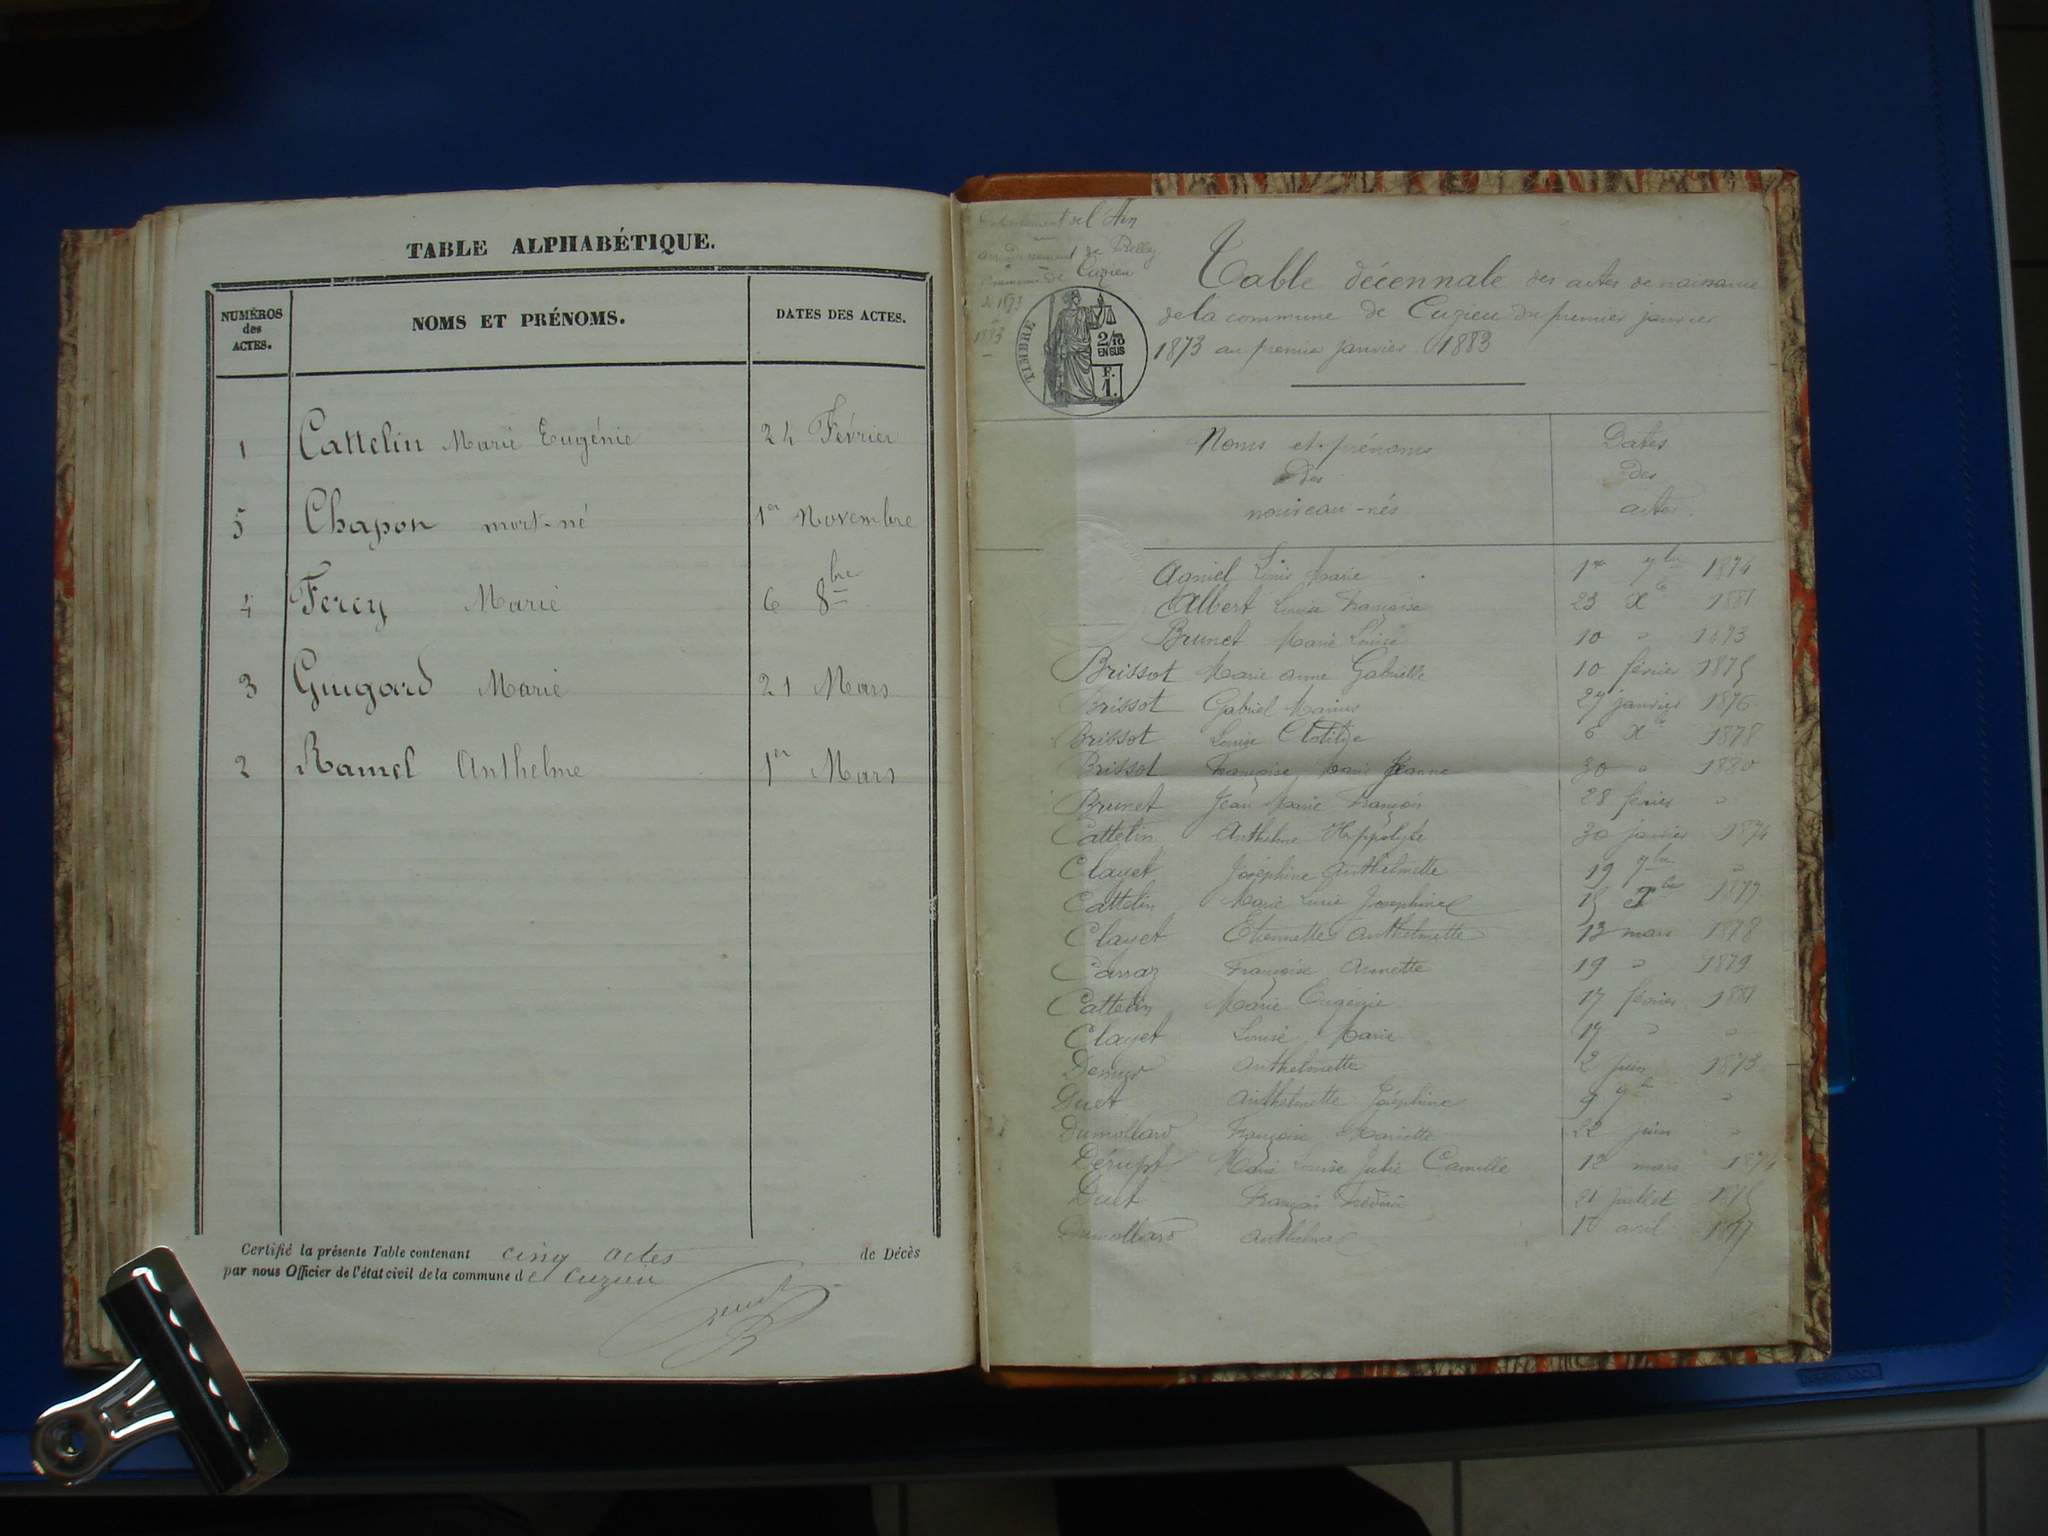 TABLE ALPHABÉTIQUE.
NUMÉROS des ACTES. NOMS ET PRÉNOMS. DATES DES ACTES.
1 Cattelin Marie Eugénie 24 Février
5 Chapon mort-né 1er Novembre
4 Fercy Marie 6 8bre
3 Guigard Marie 21 Mars
2 Ramel Anthelme 1er Mars
Certifié la présente Table contenant cinq actes de Décès
par nous Officier de l'état civil de la commune de Cuzieu
Département de l'Ain
arrondissement de Belley
Commune de Cuzieu
de 1873
à
1883
TIMBRE
2/10
EN SUS
F.
1.
Table décennale des actes de naissance
de la commune de Cuzieu du premier janvier
1873 au premier janvier 1883
Noms et prénoms Dates
des des
nouveau-nés actes.
Agniel Louis Marie 1er 7bre 1874
Albert Louise Françoise 23 Xbe 1881
Brunet Marie Louise 10 " 1873
Brissot Marie Anne Gabrielle 10 février 1875
Brissot Gabriel Marius 27 janvier 1876
Brissot Louise Clotilde 6 Xbe 1878
Brissot Françoise Marie Jeanne 30 " 1880
Brunet Jean Marie François 28 février "
Cattelin Anthelme Hippolyte 30 janvier 1874
Clayet Joséphine Anthelmette 19 7bre "
Cattelin Marie Josephine 15 1877
Clayet Etiennette Anthelmette 13 mars 1878
Carraz Françoise Annette 19 " 1879
Cattelin Marie Eugénie 17 février 1881
Clayet Louise Marie 17 " "
Anthelmette 2 juin 1873
Duet Anthelmette Joséphine 9 "
Dumollard Françoise Mariette 22 juin "
Dérupt Marie Louise Julie Camille 12 mars 1874
Duet François 21 juillet 1875
Dumollard Anthelme avril 1877